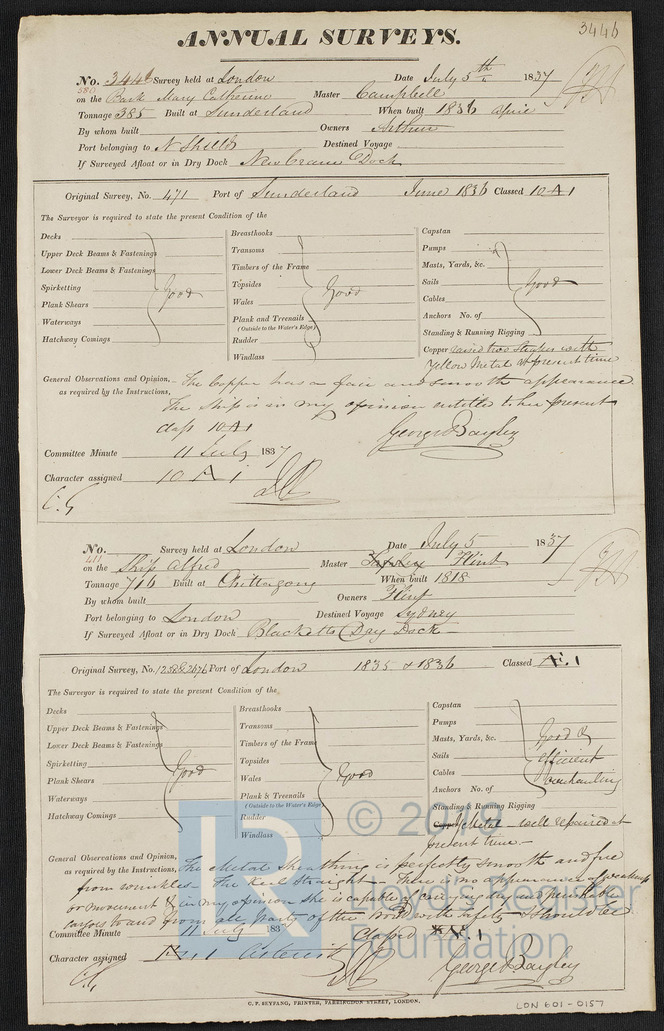 3446
ANNUAL SURVEYS.
No. 3446 Survey held at London Date July 5th 1837
380
on the Bark Mary Catherine Master Campbell
Tonnage 385 Built at Sunderland When built 1836 April
By whom built Owners Arthur
Port belonging to N Shields Destined Voyage
If Surveyed Afloat or in Dry Dock New Crane Dock
Original Survey, No. 471 Port of Sunderland June 1836 Classed 10 A 1
The Surveyor is required to state the present Condition of the
Decks
Upper Deck Beams & Fastenings
Lower Deck Beams & Fastenings
Spirketting
Plank Shears
Waterways
Hatchway Comings
Good
Breasthooks
Transoms
Timbers of the Frame
Topsides
Wales
Plank and Treenails
(Outside to the Water's Edge)
Rudder
Windlass
Good
Capstan
Pumps
Masts, Yards, &c.
Sails
Cables
Anchors No. of
Standing & Running Rigging
Good
Copper raised two Strakes with
Yellow Metal at present time
General Observations and Opinion, The Copper has a fair and smooth appearance
as required by the Instructions, The Ship is in my opinion entitled to her present
class 10 A 1
George Bayley
Committee Minute 11 July 1837
Character assigned 10 A 1
No. Survey held at London Date July 5 1837
411
on the Ship Alfred Master Flint
Tonnage 716 Built at Chittagong When built 1818
By whom built Owners Flint
Port belonging to London Destined Voyage Sydney
If Surveyed Afloat or in Dry Dock Blacketts Dry Dock
Original Survey, No. Port of London 1835 & 1836 Classed Æ.1
The Surveyor is required to state the present Condition of the
Decks
Upper Deck Beams & Fastenings
Lower Deck Beams & Fastenings
Spirketting
Plank Shears
Waterways
Hatchway Comings
Good
Breasthooks
Transoms
Timbers of the Frame
Topsides
Wales
Plank & Treenails
(Outside to the Water's Edge)
Rudder
Windlass
Good
Capstan
Pumps
Masts, Yards, &c.
Sails
Cables
Anchors No. of
Standing & Running Rigging
Good &
efficient
overhauling
Metal well repaired at
present time
General Observations and Opinion, The Metal Sheathing is perfectly smooth and free
as required by the Instructions,
from wrinkles. The Keel straight. There is no appearance of weakness
or movement & in my opinion she is capable of carrying dry and perishable
cargoes to and from all parts of the world with safety & should be
Classed Æ.1
Committee Minute 11 July 183
Character assigned Æ 1 Asterisk
George Bayley
C. F. SEYFANG, PRINTER, FARRINGDON STREET, LONDON.
LDN 601-0157
LR
© 2018
Lloyd's Register
Foundation